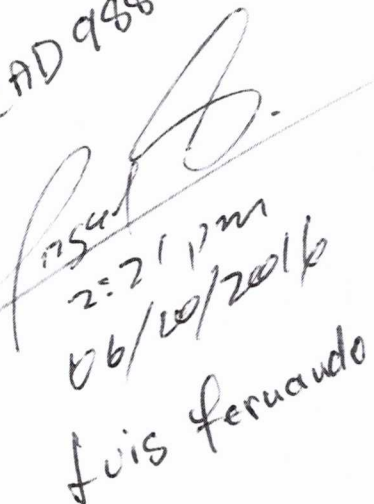 AD 988
2:21 pm
06/20/2016
Luis fernando